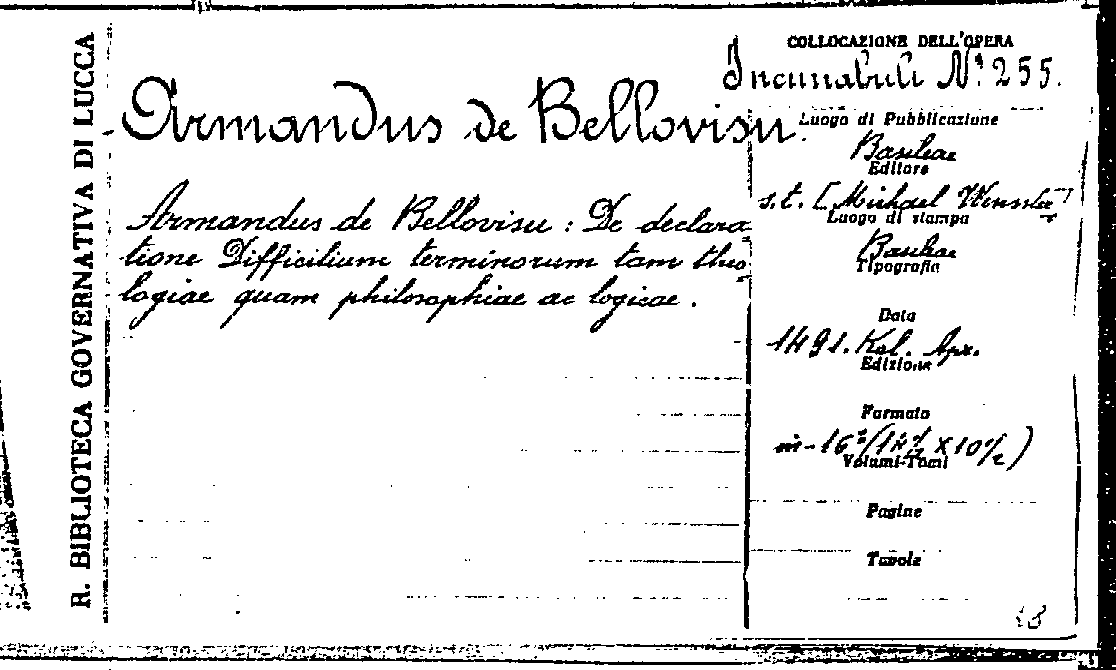 R. BIBLIOTECA GOVERNATIVA DI LUCCA
COLLOCAZIONE DELL'OPERA
Incunabuli Nº 255.
Armandus de Bellovisu.
Armandus de Bellovisu : De declara=
tione Difficilium terminorum tam theo=
logiae quam philosophiae ac logicae.
Luogo di Pubblicazione
Basileae
Editore
s. t. [Michael Wenssler]
Luogo di stampa
Basileae
Tipografia
Data
1491. Kal. Apr.
Edizione
Formato
in-16º (14½ x 10½)
Volumi-Tomi
Pagine
Tavole